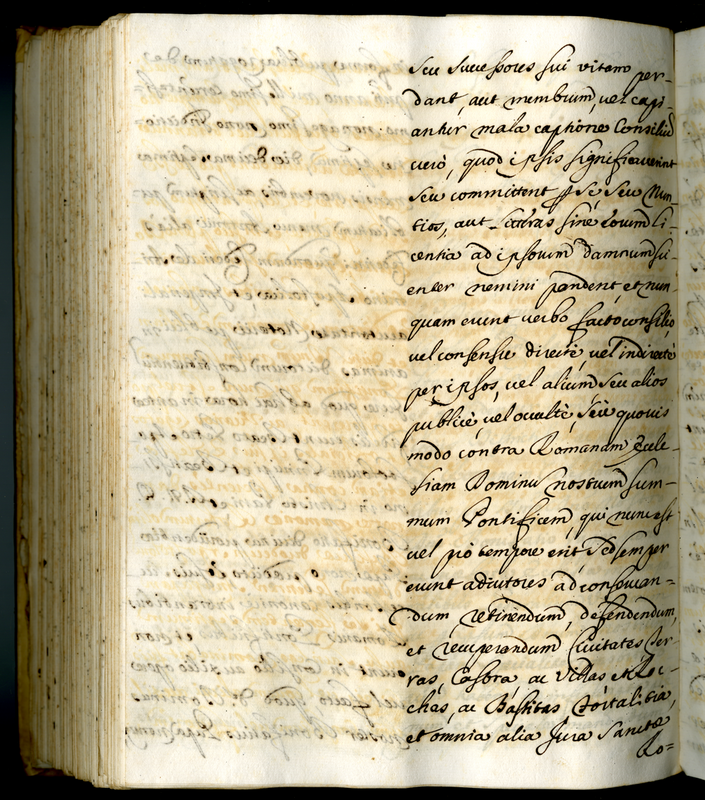 seu successores sui vitam per-
dant, aut membrum, vel capi-
antur mala captione Consiliũ
verò, quod ipsis significaverint
seu committent p se seu Nun-
tios, aut literas sine eorum li-
centia ad ipsorum damnum sci-
enter nemini pandent, et nun-
quam erunt verbo facto consilio,
vel consensu directè, vel indirectè
per ipsos, vel alium, seu alios
publicè, vel occultè, seu quovis
modo contra Romanam Eccle-
siam Dominũ nostrum sum-
mum Pontificem, qui nunc est
vel pro tempore erit Sed semper
erunt adiutores ad conservan-
dum retinendum, defendendum,
et recuperandum Civitates Ter-
ras, Castra, ac Villas et Roc-
chas, ac Bastitas Fortalitia,
et omnia alia Jura Sanctæ
Ro=